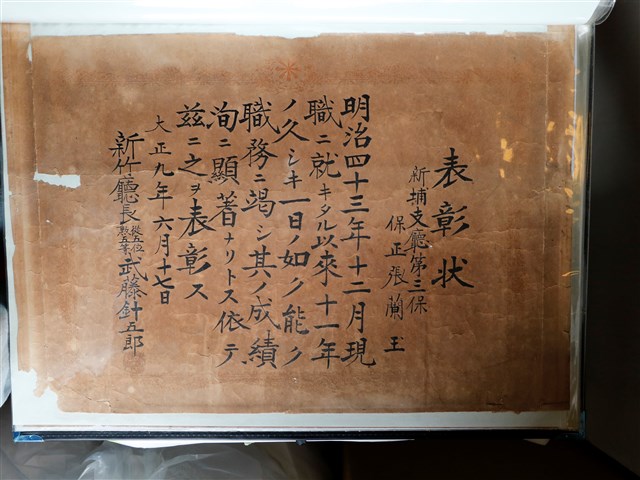 表彰状
新埔支廳第三保
保正張蘭玉
明治四十三年十二月現
職ニ就キタル以來十一年
ノ久シキ一日ノ如ク能ク
職務ニ竭シ其ノ成績
洵ニ顯著ナリトス依テ
茲ニ之ヲ表彰ス
大正九年六月十七日
新竹廳長從五位勲五等武藤針五郎